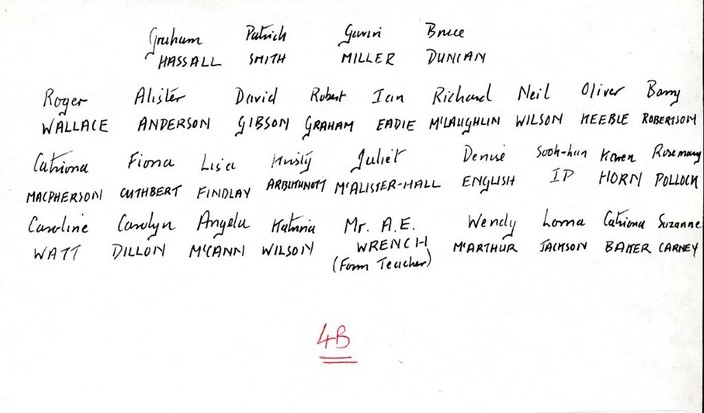 Graham Patrick Gavin Bruce
HASSALL SMITH MILLER DUNCAN
Roger Alister David Robert Ian Richard Neil Oliver Barry
WALLACE ANDERSON GIBSON GRAHAM EADIE McLAUGHLIN WILSON KEEBLE ROBERTSON
Catriona Fiona Lisa Kirsty Juliet Denise Sook-han Karen Rosemary
MACPHERSON CUTHBERT FINDLAY ARBUTHNOTT McALISTER-HALL ENGLISH IP HORN POLLOCK
Caroline Carolyn Angela Katrina Mr. A.E. Wendy Lorna Catriona Suzanne
WATT DILLON McCANN WILSON WRENCH McARTHUR JACKSON BAKER CARNEY
(Form Teacher)
4B